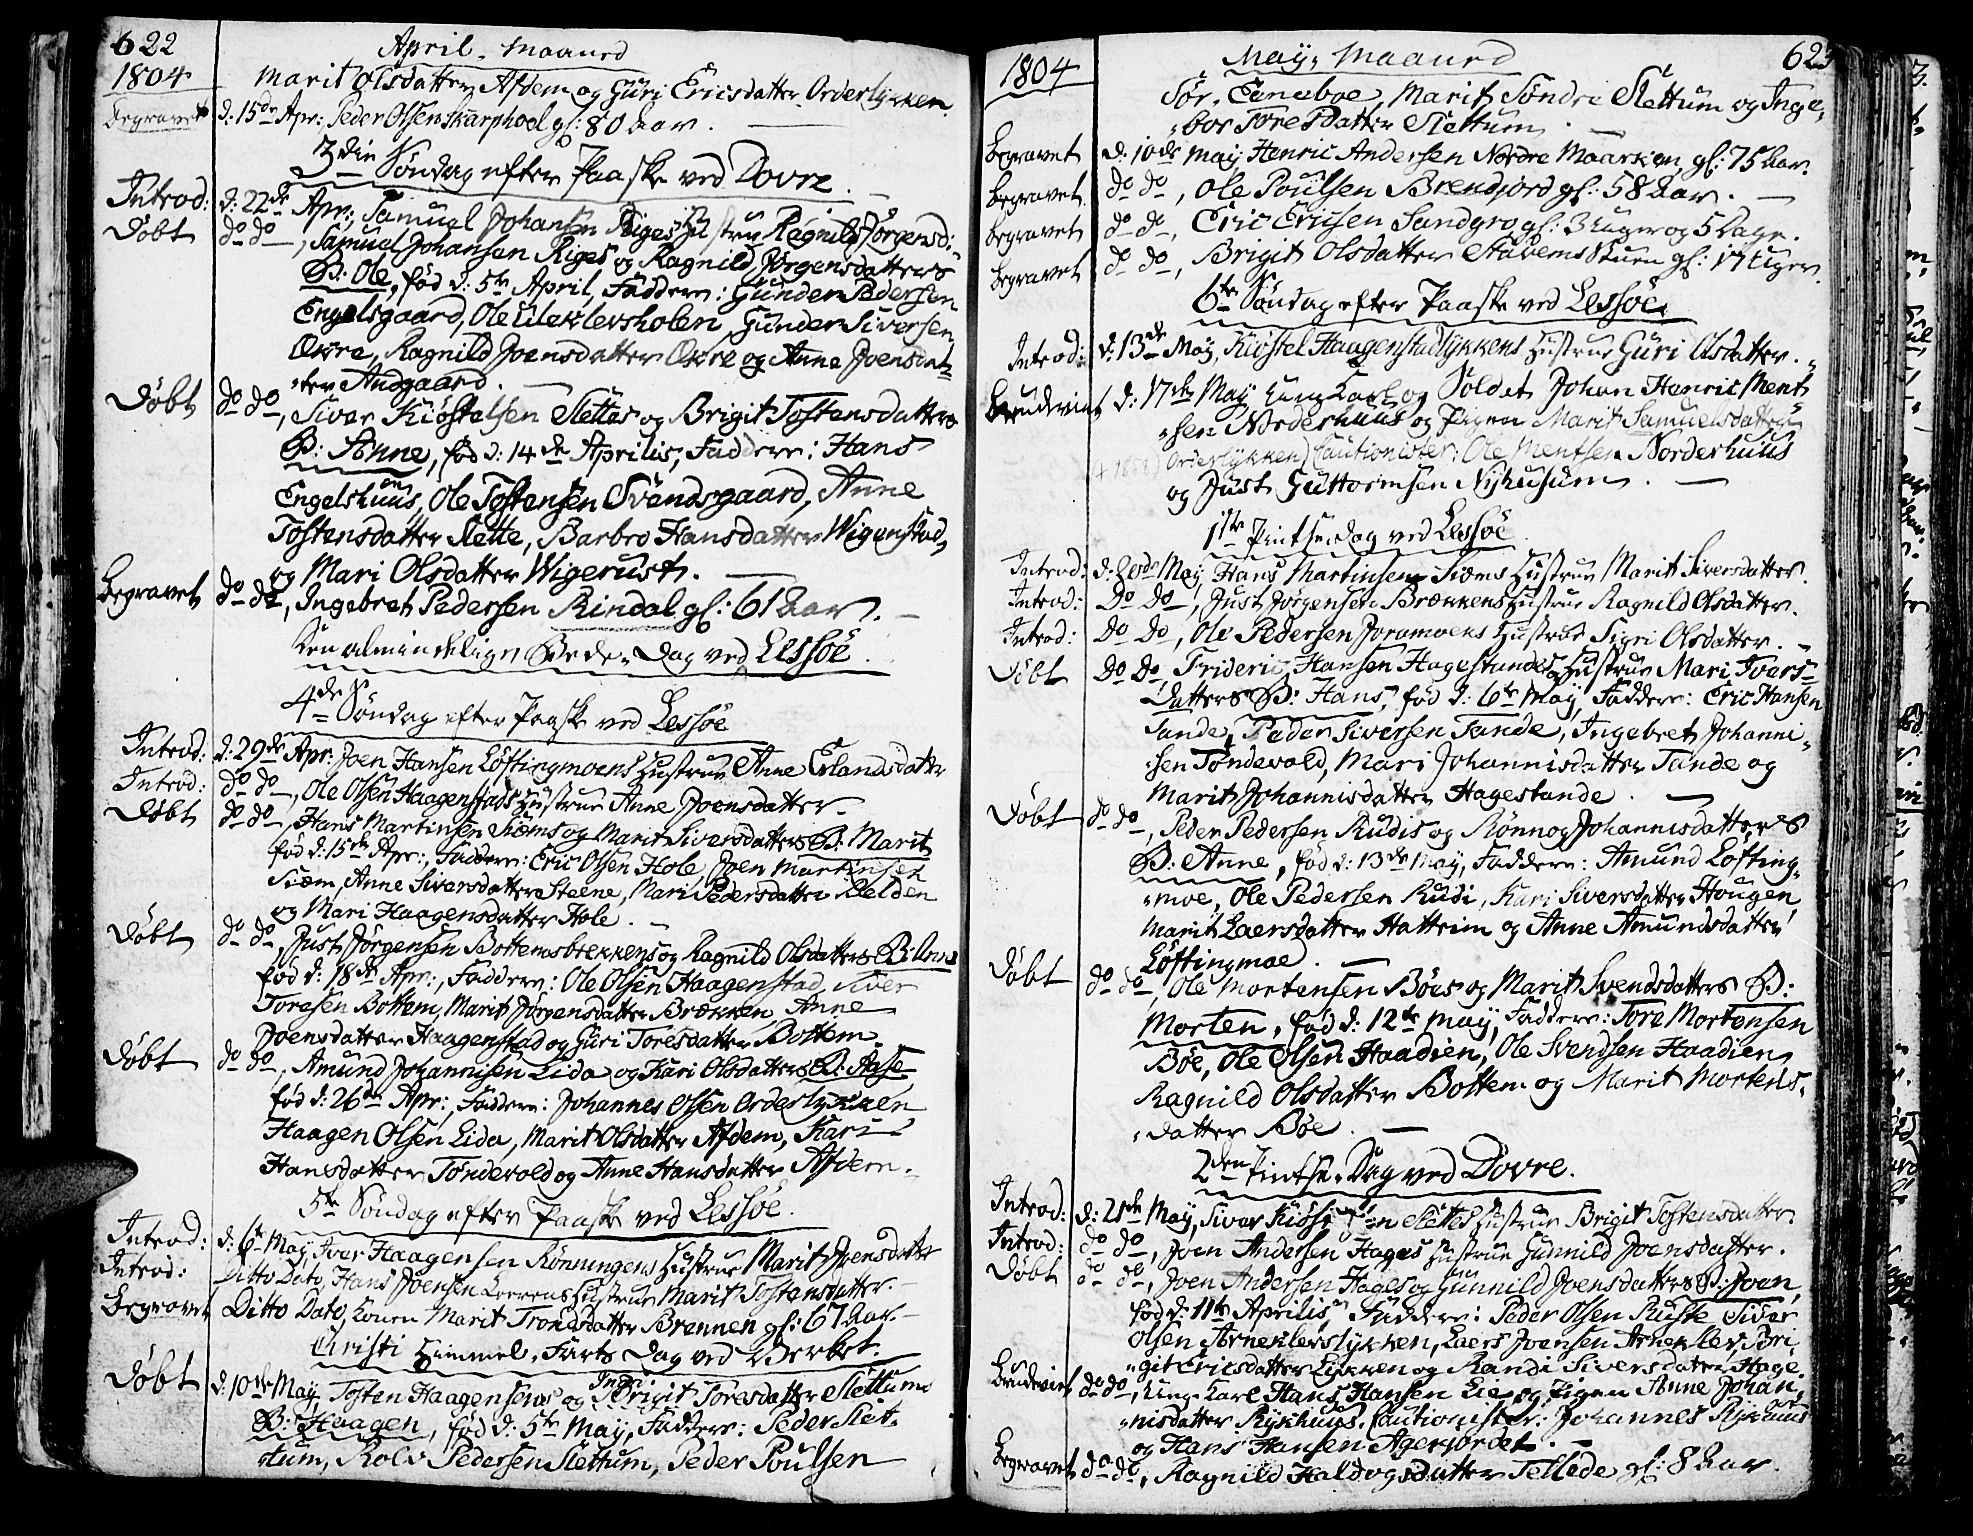 622
April. Maaned
1804
Marit Olsdatter Afdem og Guri Ericsdatter Orderlykken.
Begravet d: 15de Apr: Peder Olsen Skarphoel gl: 80 Aar.
3die Søndag efter Paaske ved Dovre.
Introd: d: 22de Apr:, Samuel Johansen Riges Hustrue Ragnild Jørgensd:
Døbt do do, Samuel Johansen Riges og Ragnild Jørgensdatters
B: Ole, fød d: 5te April, Faddere: Gunder Pedersen
Engelsgaard, Ole Uleklevsholen, Gunder Siversen
Økre, Ragnild Joensdatter Økre og Anne Joensdat=
"ter Andgaard.
Døbt do do, Siver Kiøstelsen Slettes og Brigit Tostensdatters
B: Anne, fød d: 14de Aprilis, Faddere: Hans
Engelshuus, Ole Tostensen Svendsgaard, Anne
Tostensdatter Slette, Barbro Hansdatter Wigenstad,
og Mari Olsdatter Wigerust.
Begravet do do, Ingebret Pedersen Rindal gl: 61 Aar.
Den almindelige Bede-Dag ved Lessøe.
4de Søndag efter Paaske ved Lessøe
Introd: d: 29de Apr: Joen Hansen Løftingmoens Hustrue Anne Erlandsdatter
Introd: do do, Ole Olsen Haagenstads Hustrue Anne Joensdatter
Døbt do do, Hans Martinsen Siems og Marit Siversdatters B: Marit
fød d: 15de Apr:, Faddere: Eric Olsen Hole, Joen Martinsen
Siem, Anne Siversdatter Steene, Mari Pedersdatter Kielden
og Mari Haagensdatter Hole.
Døbt do do, Just Jørgensen Bottemsbrekkens og Ragnild Olsdatters B:
fød d: 18de Apr:, Faddere: Ole Olsen Haagenstad, Siver
Toresen Bottem, Marit Jørgensdatter Brækken, Anne
Joensdatter Haagenstad og Guri Toresdatter Bottem.
Døbt do do, Amund Johannisen Lida og Kari Olsdatters B: Aase
fød d: 26de Apr:, Faddere: Johannes Olsen Orderlykken
Haagen Olsen Lida, Marit Olsdatter Afdem, Kari
Hansdatter Tøndevold og Anne Hansdatter Afdem.
5te Søndag efter Paaske ved Lessøe.
Introd: d: 6te May Iver Haagensen Rønningens Hustrue Marit Joensdatter
Introd: Ditto Dato, Hans Joensen Hustrue Marit Tostensdatter.
Begravet Ditto Dato, Konen Marit Trondsdatter Brennen gl: 67 Aar.
Christi Himmel-Farts Dag ved Werket.
Døbt d: 10de May, Tosten Haagensens og Brigit Toresdatter Slettums
B: Haagen, fød d: 5te May, Faddere: Peder Slet-
tum, Rolv Pedersen Slettum, Peder Poulsen
623
May, Maaned
1804
Sør-Eeneboe, Marit Søndre Slettum og Inge,
"bor Toresdatter Slettum.
Begravet d: 10de May Henric Andersen Nordre Maarken, gl: 75 Aar.
Begravet do do, Ole Poulsen Brendjord gl: 58 Aar.
Begravet do do, Eric Ericsen Sandgro gl: 3 Uger og 5 Dage.
Begravet do do, Brigit Olsdatter Stavems Stuen gl: 17 Uger.
6te Søndag efter Paaske ved Lessøe.
Introd: d: 13de May, Kiøstel Haagenstadlykkens Hustrue Guri Olsdatter.
Brudeviet d: 17de May Ung Karl og Soldat Johan Henric Ment
"sen Norderhuus og Pigen Marit Samuelsdatter
Orderlykken) Cautionister: Ole Mentsen Norderhuus
og Just Guttormsen Nyhusum.
1ste Pintse-Dag ved Lessøe
Introd: d: 20de May, Hans Martinsen Siems Hustrue Marit Siversdatter.
Introd: Do Do, Just Jørgensen Brækkens Hustrue Ragnild Olsdatter.
Introd: Do Do, Ole Pedersen Joramoens Hustrue Sigri Olsdatter.
Døbt Do Do, Frideric Hansen Hagestandes Hustrue Mari Ivers-
Datters B: Hans, fød d: 6te May, Faddere: Eric Hansen
Sande, Peder Siversen Sande, Ingebret Johanni-
"sen Tøndevold, Mari Johannisdatter Tande og
Marit Johannisdatter Hagestande.
Døbt do do, Peder Pedersen Rudis og Rønnog Johannisdatters
B: Anne, fød d: 13de May, Faddere: Amund Løfting-
"moe, Ole Pedersen Rudi, Kari Siversdatter Hougen
Marit Laersdatter Hatteim og Anne Amundsdatter
Løftingmoe.
Døbt do do, Ole Mortensen Bøes og Marit Svendsdatters B:
Morten, fød d: 12te May, Faddere: Tore Mortensen
Bøe, Ole Olsen Haadien, Ole Svendsen Haadien,
Ragnild Olsdatter Bottem og Marit Mortens-
"datter Bøe.
2den Pintse-Dag ved Dovre.
Introd: d: 21de May, Siver Kiøstelsen Slettes Hustrue Brigit Tostensdatter.
Introd: do do, Joen Andersen Hages Hustrue Gunnild Joensdatter.
Døbt do do, Joen Andersen Hages og Gunnild Joensdatters B: Joen,
fød d: 11te Aprilis, Faddere: Peder Olsen Ruste Siver
Olsen Arneklevslykken, Laers Joensen Arneklev, Bri-
"git Ericsdatter Lykken og Randi Siversdatter Hage.
Brudeviet do do, Ung Karl Hans Hansen Lie og Pigen Anne Johan,
"nisdatter Rykhuus. Cautionister: Johannes Rykhuus
og Hans Hansen Agerjordet.
Begravet do do, Ragnild Haldogsdatter Tellede gl: 8 Aar.